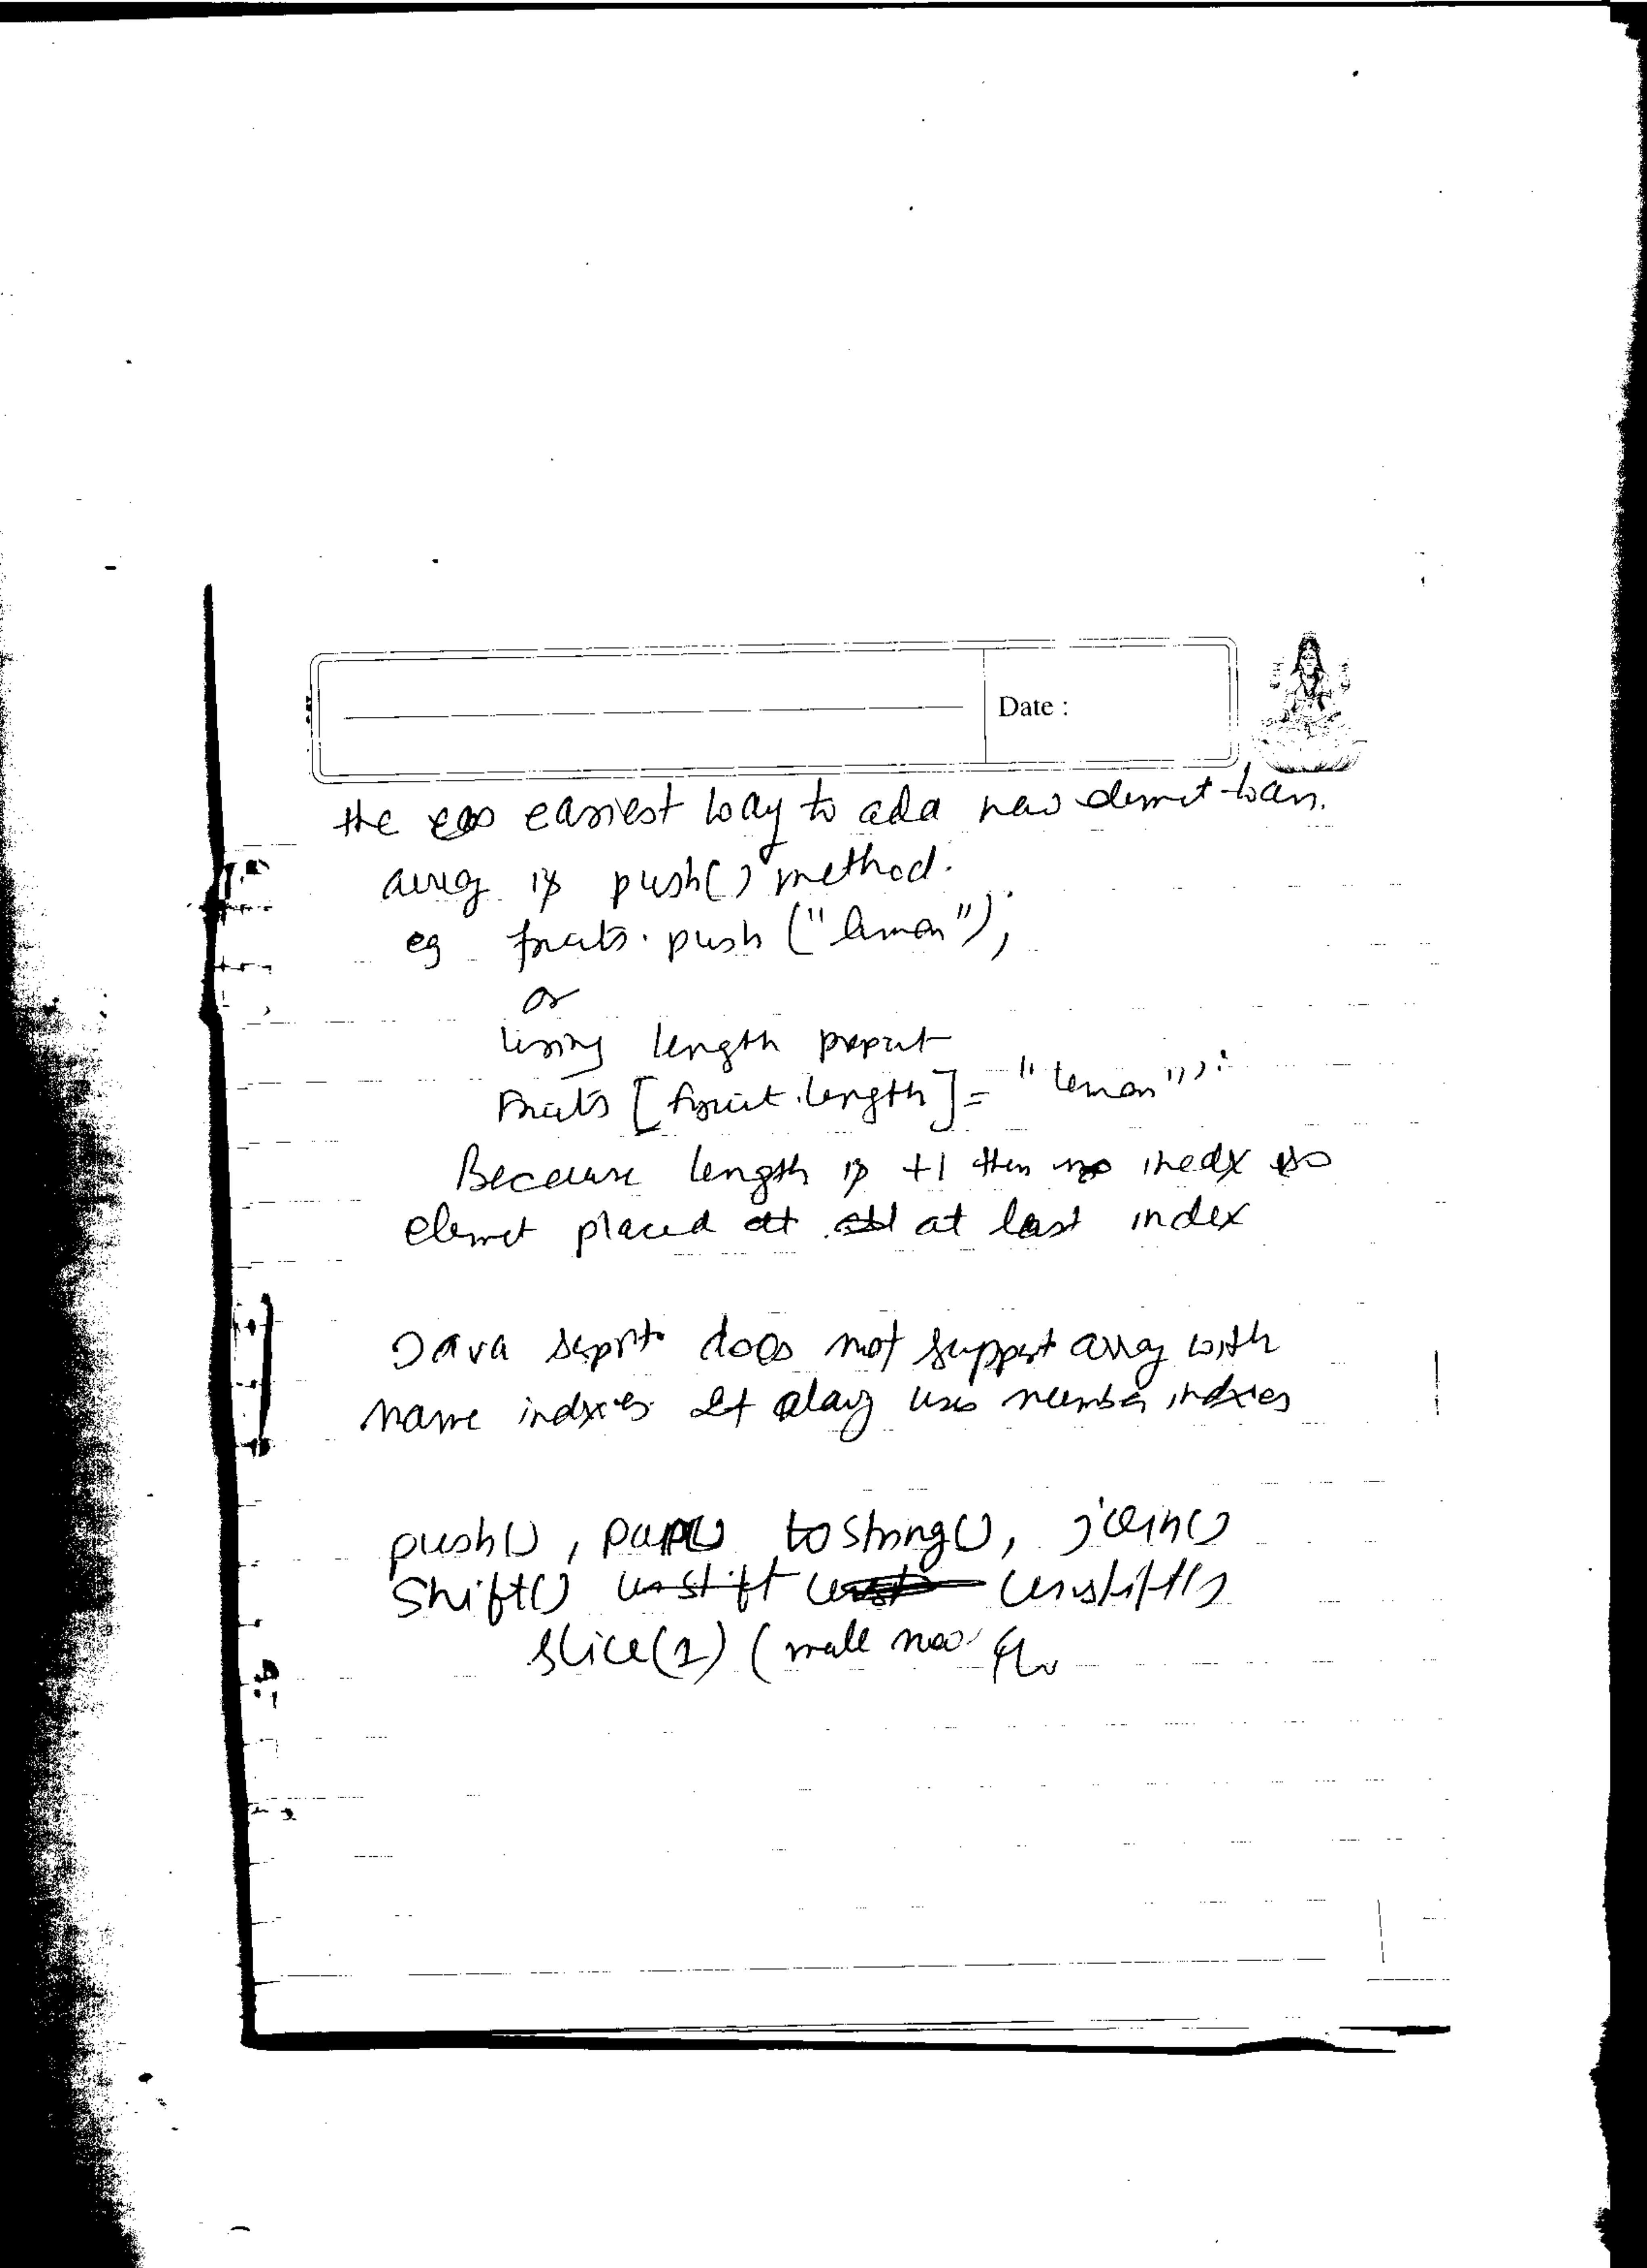 Date :
the eas easiest way to add new elemet to an.
array is push() method.
eg fruits.push("lemon");
or
Using length propert
Fruits [fruit.length] = "lemon");
Because length is +1 then no inedx so
elemet placed at at last index
Java script does not support array with
name indxies It alway uses number indxies
push(), pop() toString(), join()
Shift() unshift unshift()
slice(1) (make new